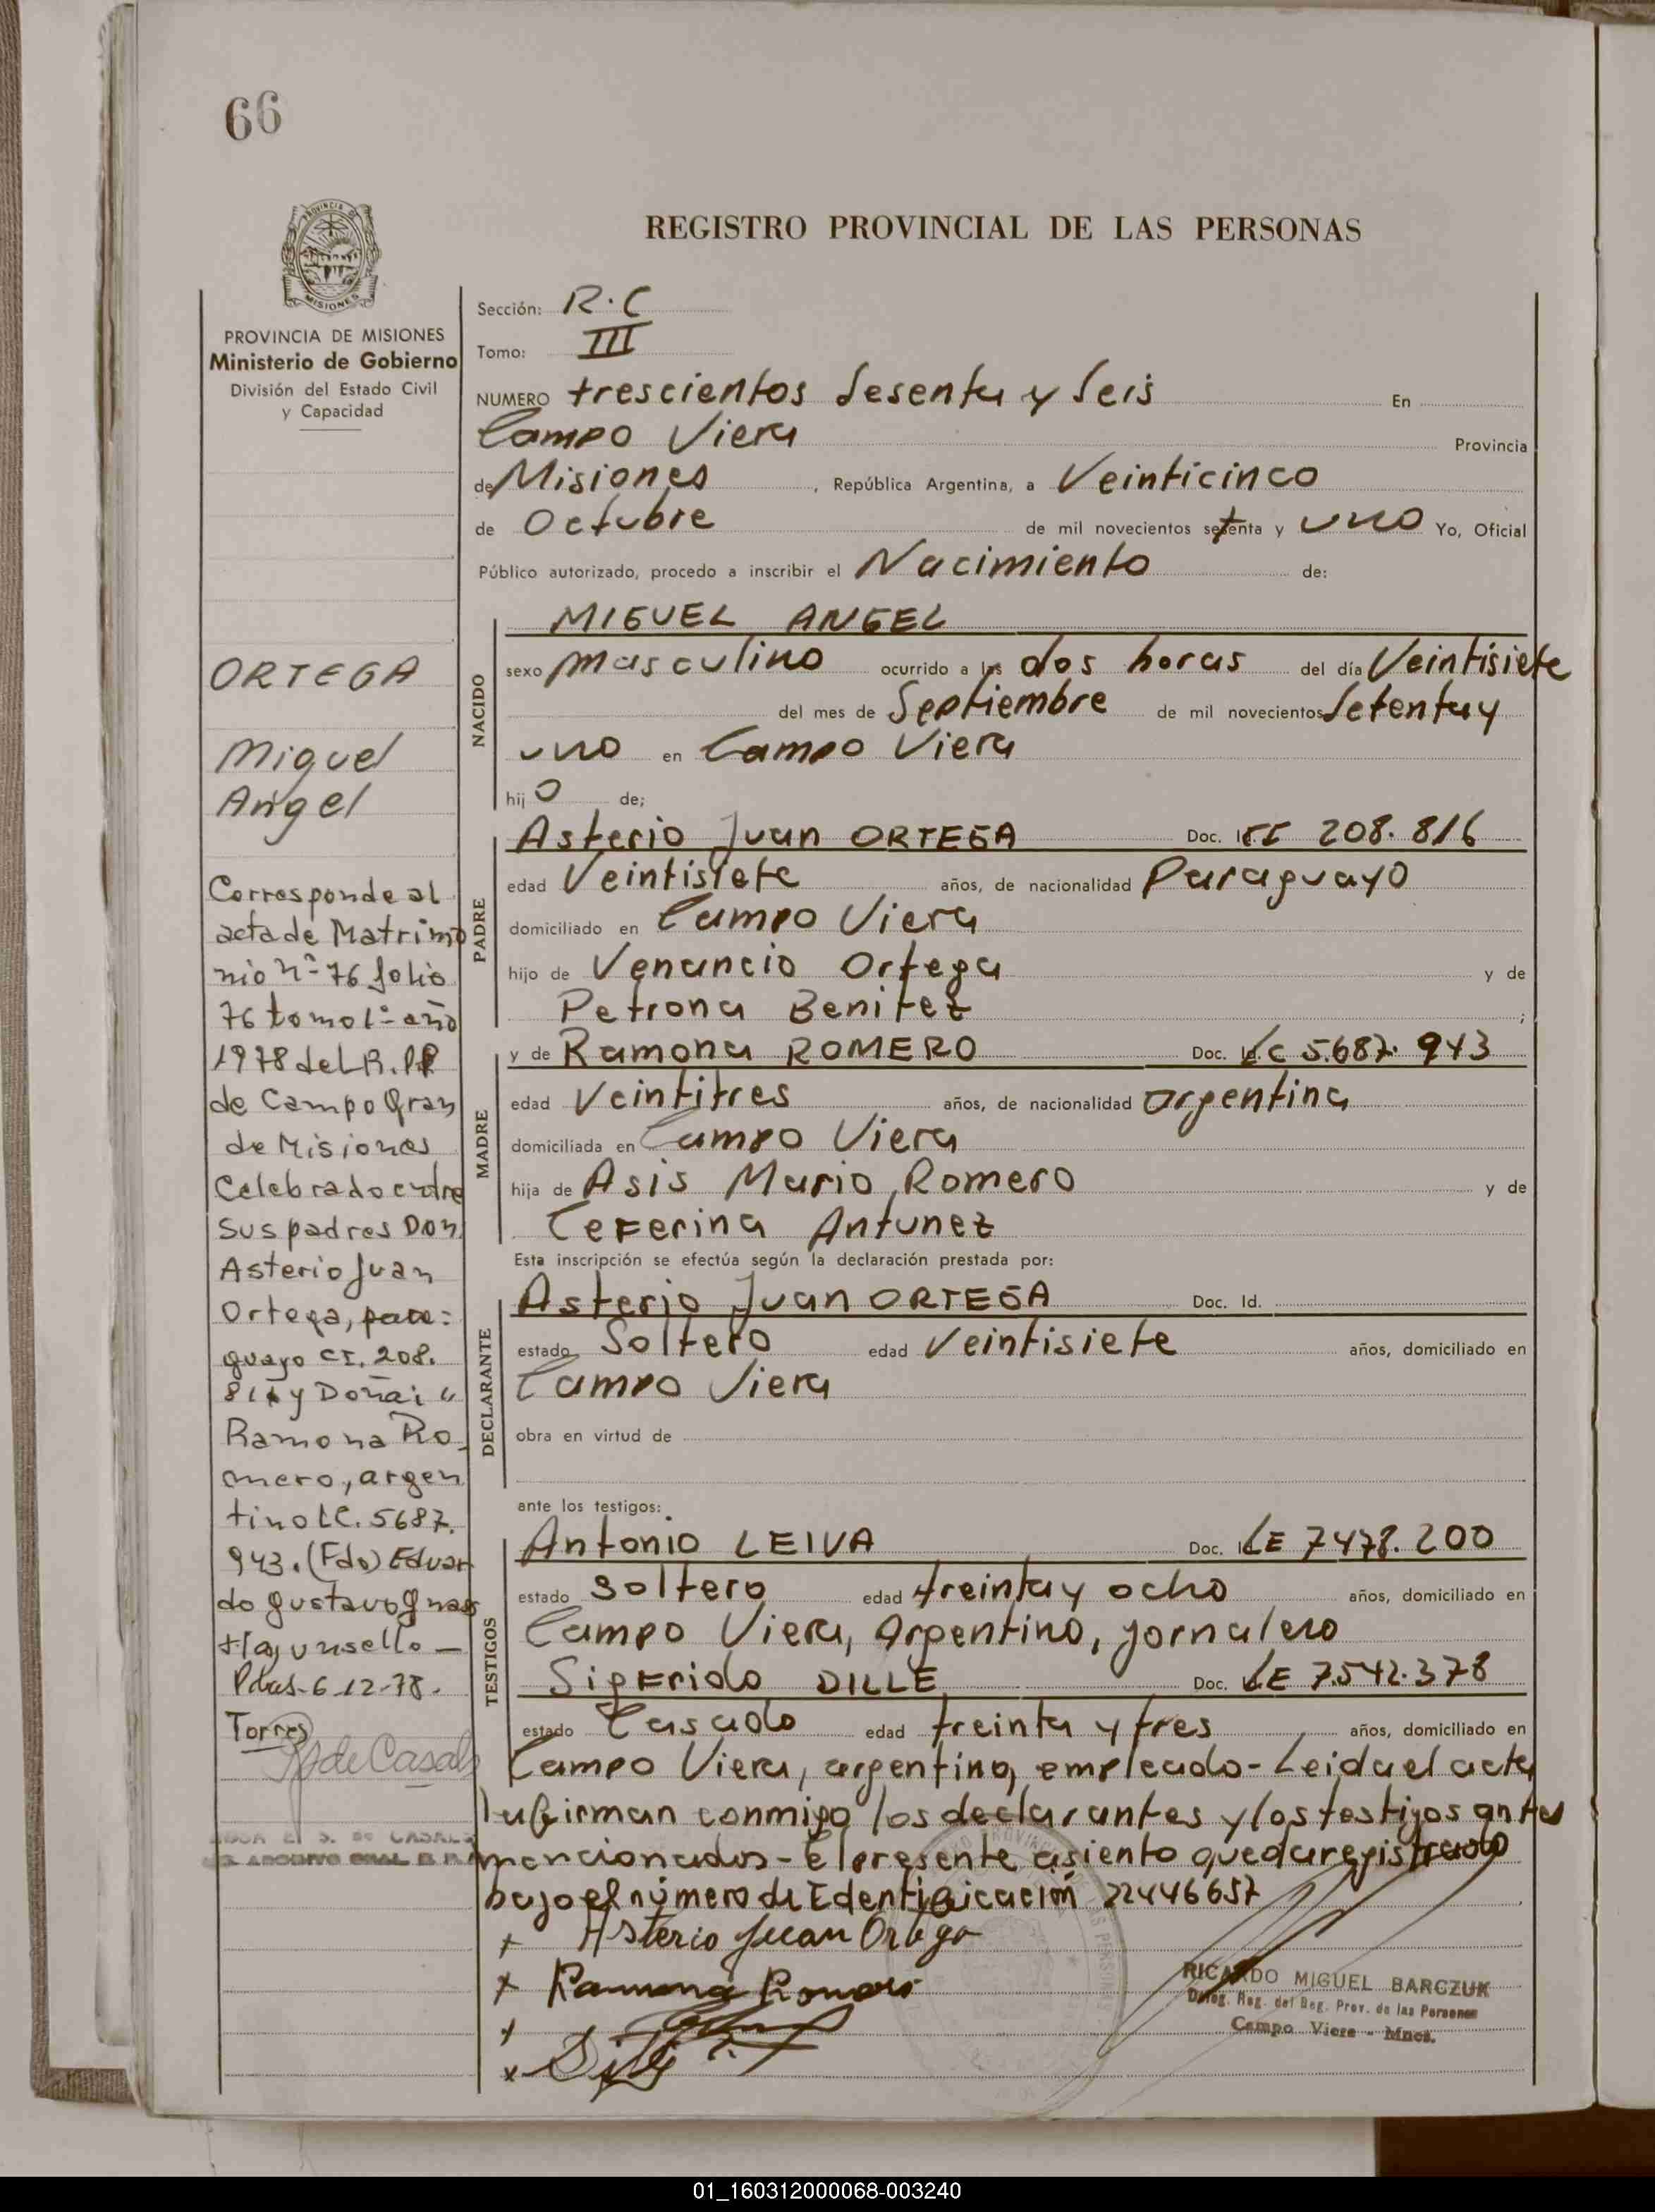 66
REGISTRO PROVINCIAL DE LAS PERSONAS
MISIONES
PROVINCIA DE MISIONES
Ministerio de Gobierno
División del Estado Civil
y Capacidad
ORTEGA
Miguel
Angel
Corresponde al
acta de Matrimo
nio nº 76 folio
76 tomo 1º año
1978 del R.PP
de Campo Gran
de Misiones
Celebrado entre
sus padres Don
Asterio Juan
Ortega, para=
guayo CI. 208.
816 y Doña: "
Ramona Ro_
mero, argen
tino LC. 5687.
943. (Fdo) Eduar
do Gustavo
Hay un sello —
Pdas. 6-12-78.
Torres
de Casals
S. de CASALS
Sección: R.C
Tomo: III
NUMERO trescientos sesenta y seis En
Campo Viera Provincia
de Misiones, República Argentina, a Veinticinco
de Octubre de mil novecientos setenta y uno Yo, Oficial
Público autorizado, procedo a inscribir el Nacimiento de:
NACIDO
MIGUEL ANGEL
sexo masculino ocurrido a las dos horas del día Veintisiete
del mes de Septiembre de mil novecientos setenta y
uno en Campo Viera
hijo de;
PADRE
Asterio Juan ORTEGA Doc. 208.816
edad Veintisiete años, de nacionalidad Paraguayo
domiciliado en Campo Viera
hijo de Venancio Ortega y de
Petrona Benitez ;
MADRE
y de Ramona ROMERO Doc. LC 5.687.943
edad Veintitres años, de nacionalidad argentina
domiciliada en Campo Viera
hija de Asis Mario Romero y de
Ceferina Antunez
Esta inscripción se efectúa según la declaración prestada por:
DECLARANTE
Asterio Juan ORTEGA Doc. Id.
estado Soltero edad Veintisiete años, domiciliado en
Campo Viera
obra en virtud de
ante los testigos:
TESTIGOS
Antonio LEIVA Doc. LE 7478.200
estado soltero edad treinta y ocho años, domiciliado en
Campo Viera, Argentino, jornalero
Sigfrido DILLE Doc. LE 7.542.378
estado Casado edad treinta y tres años, domiciliado en
Campo Viera, argentino, empleado - Leida el acta
la firman conmigo los declarantes y los testigos antes
mencionados - el presente asiento queda registrado
bajo el número de Identificación 22446657
+ Asterio Juan Ortega
x Ramona Romero
+
x
RICARDO MIGUEL BARCZUK
Deleg. Reg. del Reg. Prov. de las Personas
Campo Viera - Mnes.
01_160312000068-003240